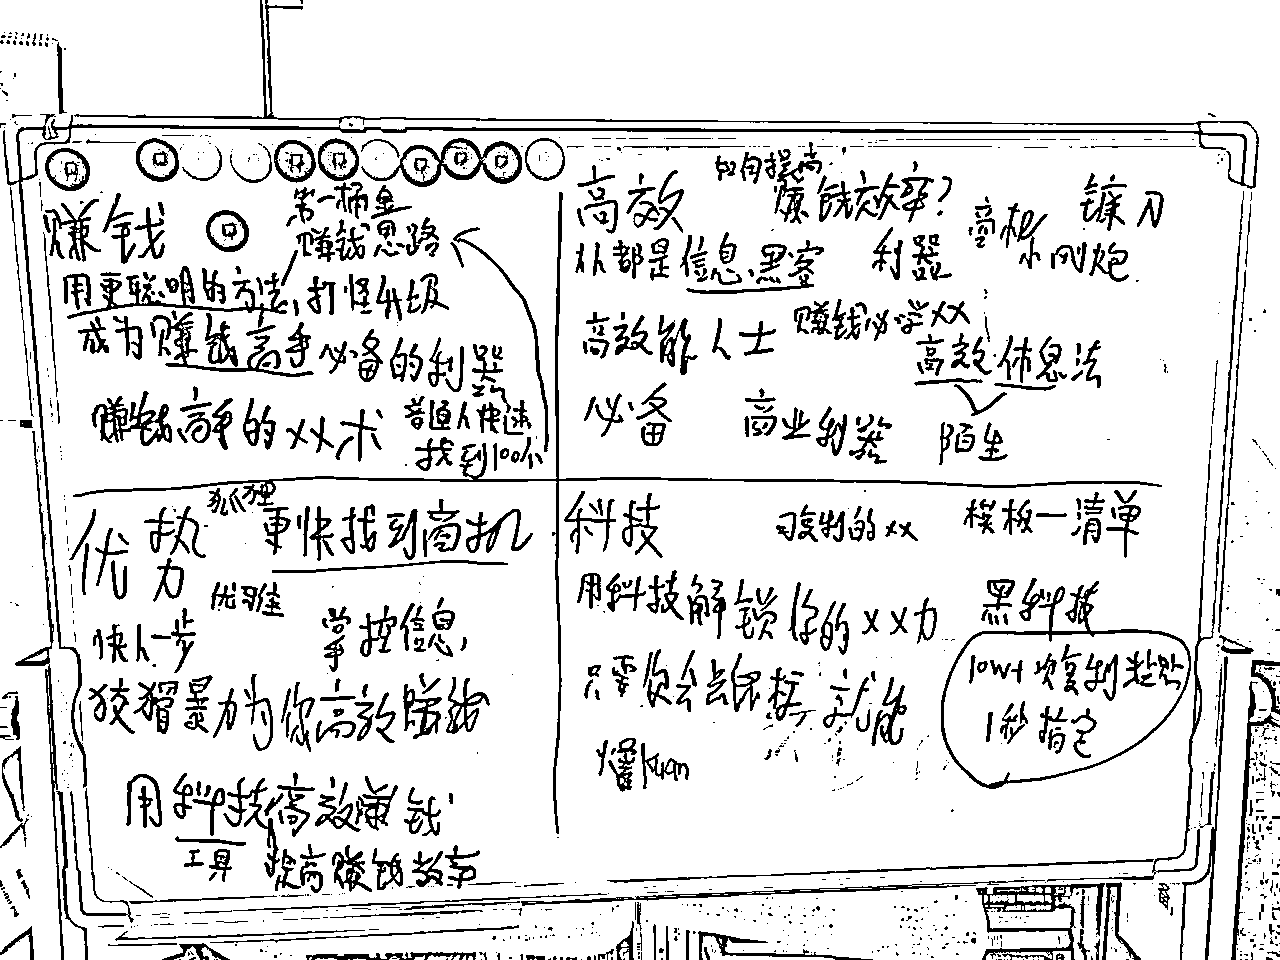 赚钱
第一桶金
赚钱思路
用更聪明的方法,打怪升级
成为赚钱高手必备的利器
赚钱高手的××术
普通人快速
找到100个
高效
如何提高
赚钱效率?
镰刀
商机
小刚炮
从都是信息黑客
利器
高效能人士
赚钱必学××
高效休息法
必备
商业利器
陌生
优势
狐狸
更快找到商机
优雅
快人一步
掌控信息,
狡猾暴力为你高效赚钱
用科技高效赚钱
工具
提高赚钱效率
科技
可复制的××
模板一清单
用科技解锁你的××力
黑科技
只要你会 就能
10w+
1秒搞定